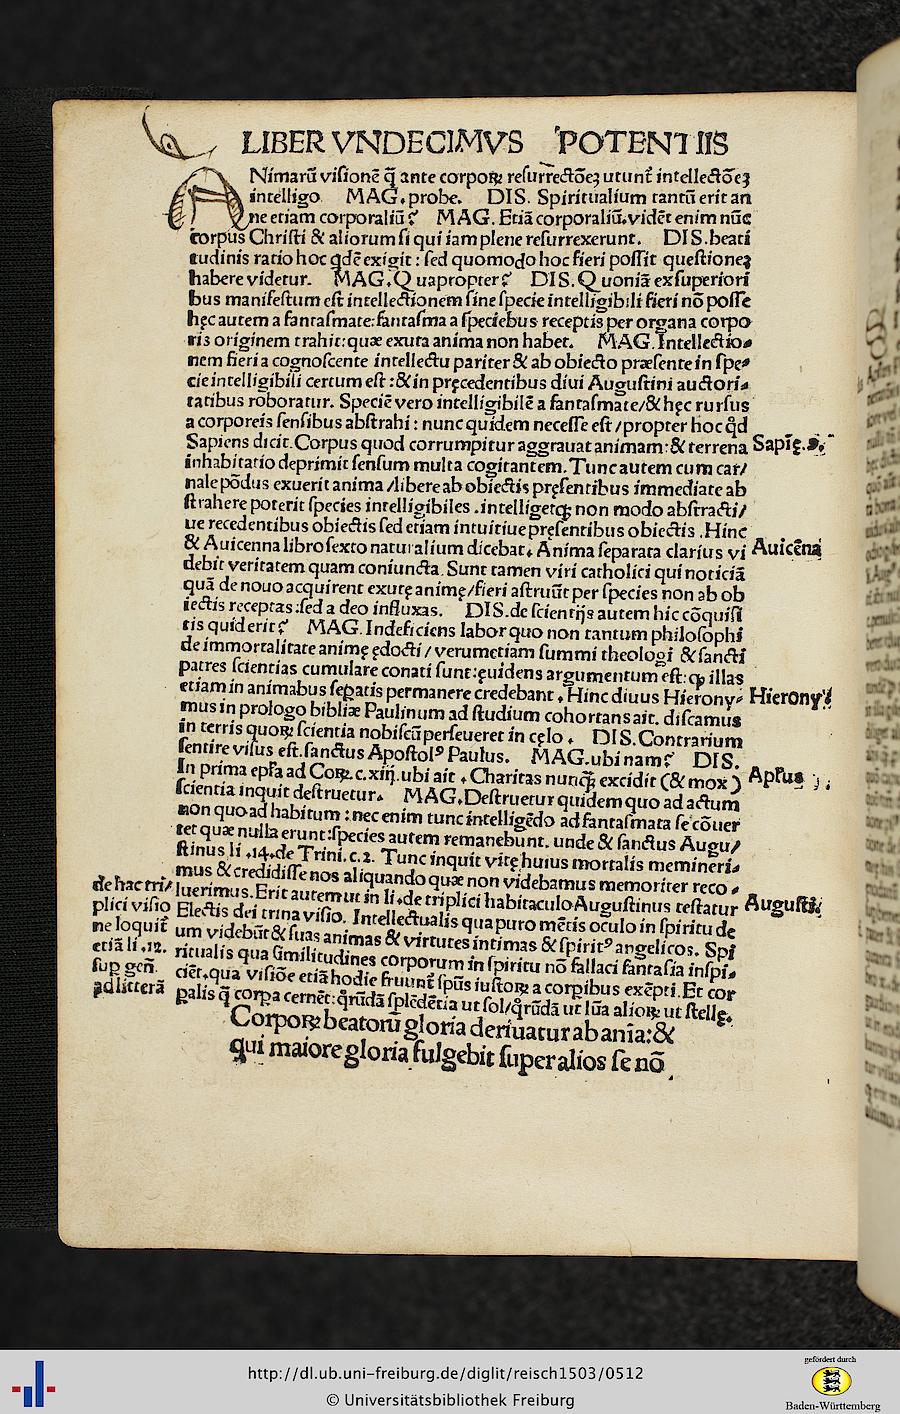 LIBER VNDECIMVS POTENTIIS
ANimarū visionē q̄ ante corporꝝ resurrectōeꝫ utunt᷑ intellectōeꝫ
intelligo MAG. probe. DIS. Spiritualium tantū erit an
ne etiam corporaliū? MAG. Etiā corporaliū. vidēt enim nūc
corpus Christi & aliorum si qui iam plene resurrexerunt. DIS. beati
tudinis ratio hoc qdē exigit : sed quomodo hoc fieri possit questioneꝫ
habere videtur. MAG. Quapropter? DIS. Quoniā ex superiori
bus manifestum est intellectionem sine specie intelligibili fieri nō posse
hęc autem a fantasmate: fantasma a speciebus receptis per organa corpo
ris originem trahit: quæ exuta anima non habet. MAG. Intellectio⸗
nem fieri a cognoscente intellectu pariter & ab obiecto præsente in spe⸗
cie intelligibili certum est : & in pręcedentibus diui Augustini auctori⸗
tatibus roboratur. Speciē vero intelligibilē a fantasmate/& hęc rursus
a corporeis sensibus abstrahi : nunc quidem necesse est / propter hoc qd̄
Sapiens dicit. Corpus quod corrumpitur aggrauat animam: & terrena
Sapię. 9.
inhabitatio deprimit sensum multa cogitantem. Tunc autem cum car/
nale pōdus exuerit anima / libere ab obiectis pręsentibus immediate ab
strahere poterit species intelligibiles . intelligetqꝫ non modo abstracti/
ue recedentibus obiectis sed etiam intuitiue pręsentibus obiectis . Hinc
& Auicenna libro sexto naturalium dicebat. Anima separata clarius vi
Auicēna
debit veritatem quam coniuncta. Sunt tamen viri catholici qui noticiā
quā de nouo acquirent exutę animę / fieri astruūt per species non ab ob
iectis receptas : sed a deo influxas. DIS. de scientijs autem hic cōquisi
tis quid erit? MAG. Indeficiens labor quo non tantum philosophi
de immortalitate animę ędocti / verumetiam summi theologi & sancti
patres scientias cumulare conati sunt : euidens argumentum est: ꝙ illas
etiam in animabus sepatis permanere credebant . Hinc diuus Hierony⸗
Hierony⁹
mus in prologo bibliæ Paulinum ad studium cohortans ait. discamus
in terris quorꝝ scientia nobiscū perseueret in cęlo . DIS. Contrarium
sentire visus est. sanctus Apostol⁹ Paulus. MAG. ubi nam? DIS.
In prima ep̄la ad Corꝝ. c. xiij. ubi ait . Charitas nunqꝫ excidit (& mox )
Ap̄lus
scientia inquit destruetur. MAG. Destruetur quidem quo ad actum
non quo ad habitum : nec enim tunc intelligēdo ad fantasmata se cōuer
tet quæ nulla erunt : species autem remanebunt. unde & sanctus Augu/
stinus li .14. de Trini. c. 2. Tunc inquit vitę huius mortalis memineri⸗
mus & credidisse nos aliquando quæ non videbamus memoriter reco ⸗
luerimus. Erit autem ut in li. de triplici habitaculo Augustinus testatur
Augusti.
de hac tri/
plici visio
ne loquit᷑
etiā li .12.
sup gen̄.
ad litterā
Electis dei trina visio. Intellectualis qua puro mētis oculo in spiritu de
um videbūt & suas animas & virtutes intimas & spirit⁹ angelicos. Spi
ritualis qua similitudines corporum in spiritu nō fallaci fantasia inspi⸗
ciēt. qua visiōe etiā hodie fruunt᷑ sp̄us iustorꝝ a corpibus exēpti. Et cor
palis q̄ corpa cernēt: qrūdā splēdētia ut sol / qrūdā ut lūa aliorꝝ ut stellę.
Corporꝝ beatorū gloria deriuatur ab anīa: &
qui maiore gloria fulgebit super alios se nō
http://dl.ub.uni-freiburg.de/diglit/reisch1503/0512
© Universitätsbibliothek Freiburg
gefördert durch
Baden-Württemberg